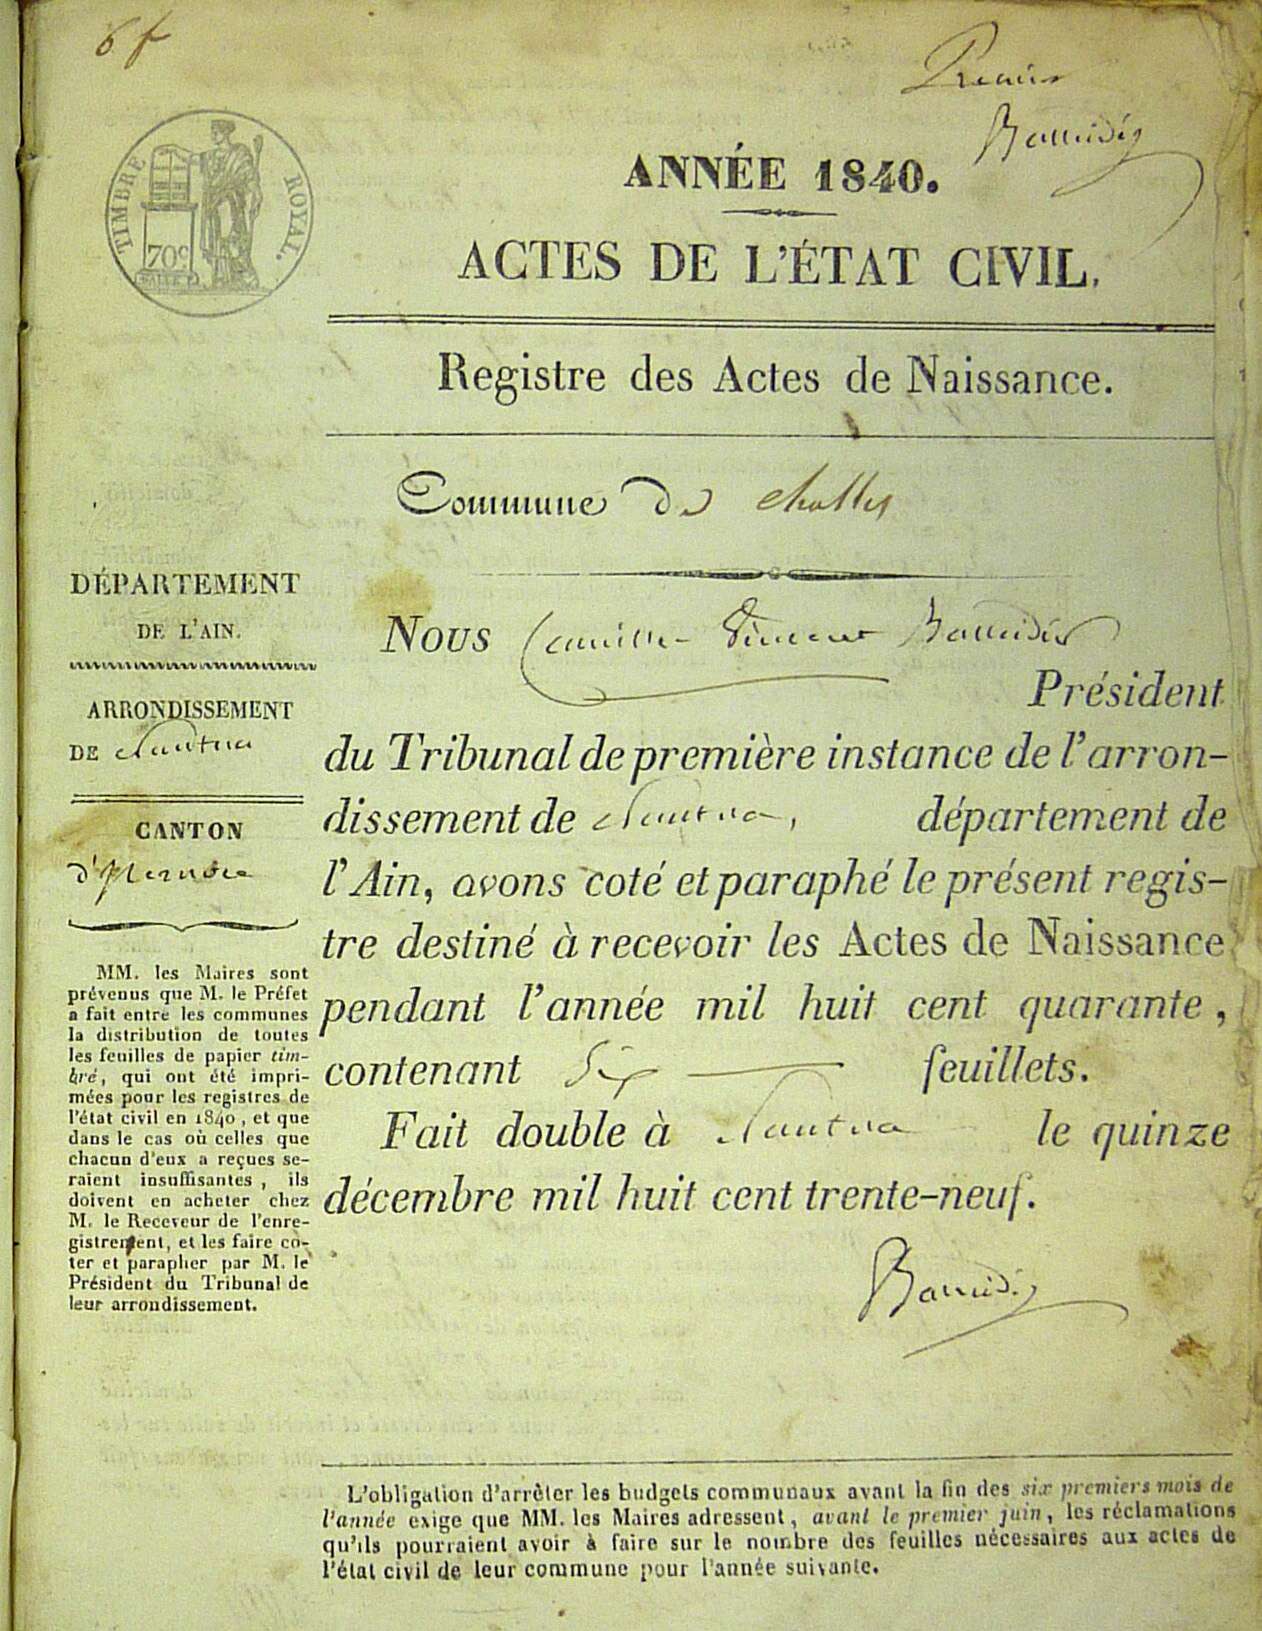 6 f
Premier
TIMBRE ROYAL.
70c
ANNÉE 1840.
ACTES DE L'ÉTAT CIVIL.
Registre des Actes de Naissance.
Commune de
DÉPARTEMENT
DE L'AIN.
ARRONDISSEMENT
DE Nantua
CANTON
MM. les Maires sont
prévenus que M. le Préfet
a fait entre les communes
la distribution de toutes
les feuilles de papier tim-
bré, qui ont été impri-
mées pour les registres de
l'état civil en 1840, et que
dans le cas où celles que
chacun d'eux a reçues se-
raient insuffisantes, ils
doivent en acheter chez
M. le Receveur de l'enre-
gistrement, et les faire co-
ter et parapher par M. le
Président du Tribunal de
leur arrondissement.
Nous Camille
Président
du Tribunal de première instance de l'arron-
dissement de Nantua, département de
l'Ain, avons coté et paraphé le présent regis-
tre destiné à recevoir les Actes de Naissance
pendant l'année mil huit cent quarante,
contenant Six feuillets.
Fait double à Nantua le quinze
décembre mil huit cent trente-neuf.
L'obligation d'arrêter les budgets communaux avant la fin des six premiers mois de
l'année exige que MM. les Maires adressent, avant le premier juin, les réclamations
qu'ils pourraient avoir à faire sur le nombre des feuilles nécessaires aux actes de
l'état civil de leur commune pour l'année suivante.